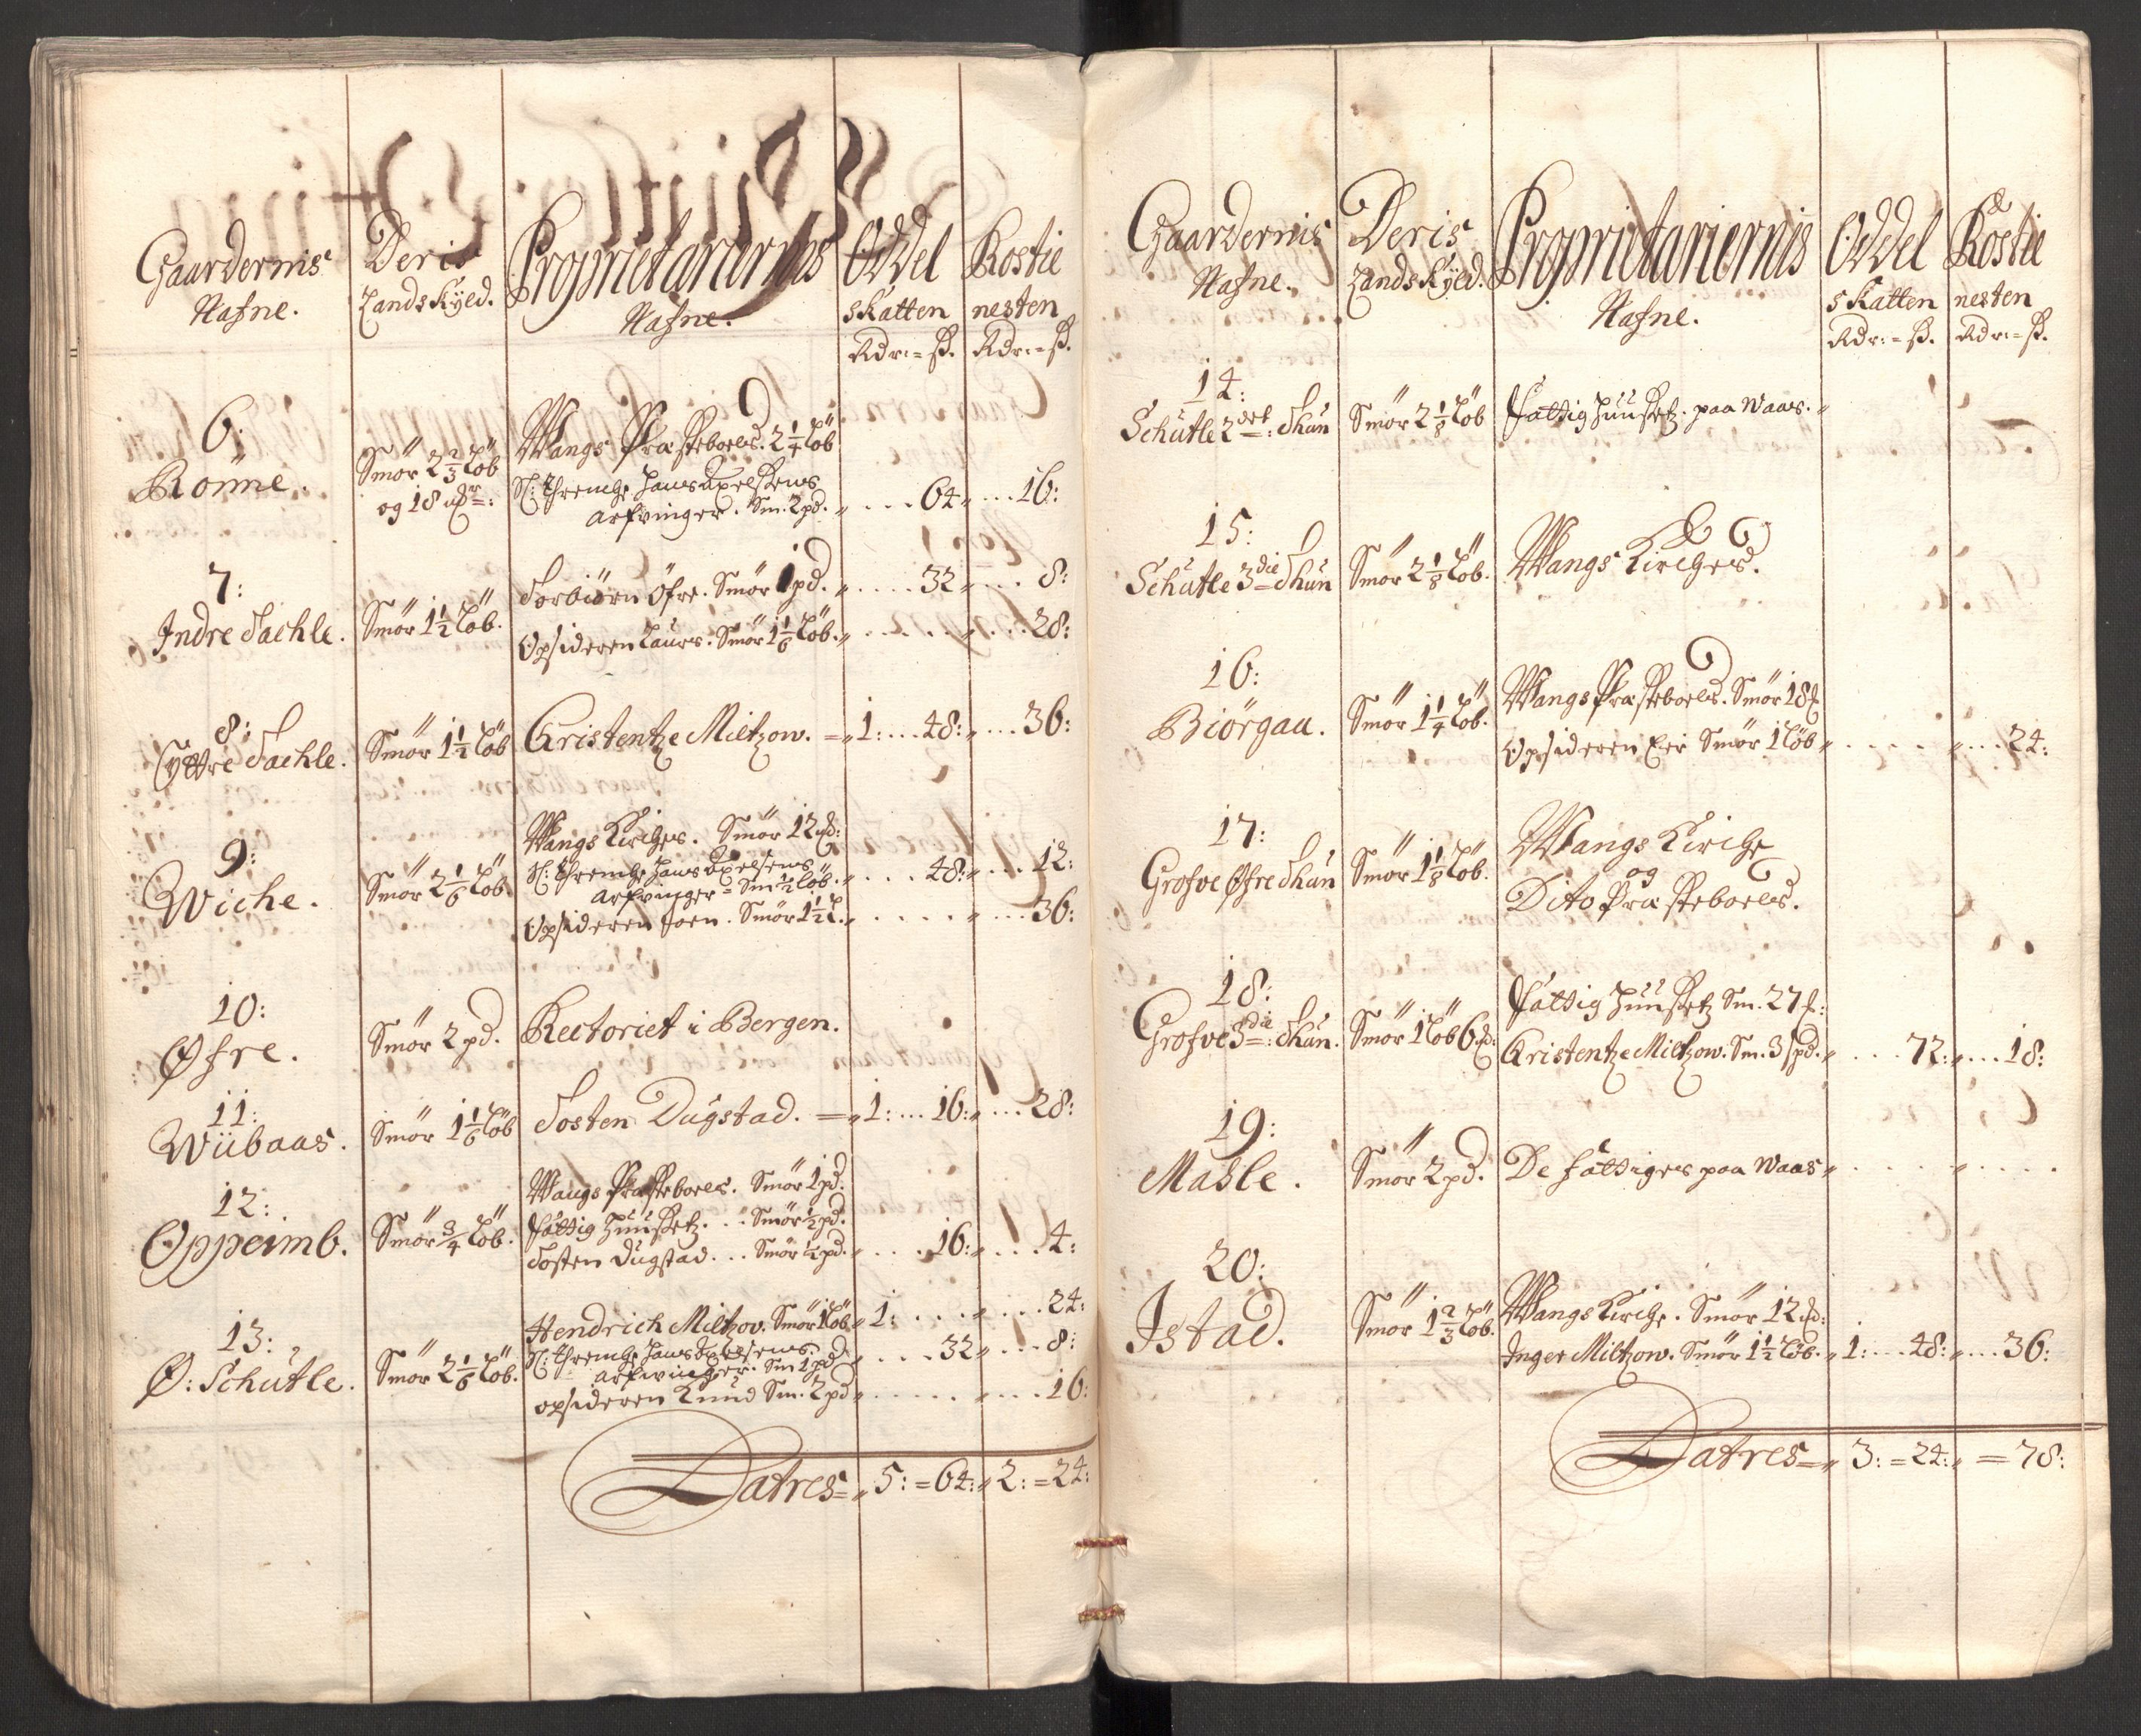 Gaardernis
Nafne.
Deris
Landskyld.
Proprietariernis
Nafne.
Oddel
skatten
Rdr: = ß.
Rostie
nesten
Rdr: = ß.
6:
Rönne.
Smör 2 2/3 Löb
og 18
Wangs Præsteboels. 2 1/4 Löb
Sl: Hans Axelsens
arfvinger. Sm: 2 pd. „ ... 64 „ ... 16:
7:
Indre Saehle.
Smör 1 1/2 Löb.
Torbiörn Öfre. Smör 1 pd. „ .... 32 „ ... 8:
Opsideren Laurs. Smör 1 1/6 Löb. „ ..... „ ... 28:
8:
Yttre Saehle.
Smör 1 1/2 Löb
Cristentze Miltzow. = „ 1: ... 48: „ ... 36:
9:
Wiche.
Smör 2 1/6 Löb.
Wangs Kirches. Smör 12
Sl: Hans Axelsens
arfvinger = Sm 1/2 Löb. „ ... 48: „ ... 12:
Opsideren Joen. Smör 1 1/2 L. „ ..... „ ... 36:
10:
Øfre.
Smör 2 pd.
Rectoriet i Bergen.
11:
Wiibaas.
Smör 1 1/6 Löb
Tosten Dugstad. = „ 1: ... 16: „ ... 28:
12:
Oppeimb.
Smör 3/4 Löb.
Wangs Præsteboels. Smör 1 pd.
Fattig Huusetz. .. Smör 1/2 pd.
Tosten Dugstad ... Smör 1/2 pd. „ ... 16: „ ... 4:
13:
Ø: Schutle.
Smör 2 1/6 Löb.
Hendrich Miltzov. Smör 1 Löb „ 1: .... „ ... 24:
Sl: Hans Axelsens
arfvinger. Sm 1 pd „ ... 32 „ ... 8:
opsideren Knud Sm. 2 pd „ ..... „ ... 16:
Latres = „ 5: = 64: „ 2: = 24:
Gaardernis
Nafne.
Deris
Landskyld.
Proprietariernis
Nafne.
Oddel
skatten
Rdr: = ß.
Rostie
nesten
Rdr: = ß.
14:
Schutle 2det: Thun
Smör 2 1/8 Löb
Fattig Huusetz. paa Waas. „
15:
Schutle 3die Thun
Smör 2 1/8 Löb.
Wangs Kirches.
16:
Biörgaa.
Smör 1 1/4 Löb.
Wangs Præsteboels. Smör 18
Opsideren Eri Smör 1 Löb „ ..... „ ... 24:
17:
Grofve Øfre Thun
Smör 1 1/8 Löb.
Wangs Kirche
og
Dito Præsteboels.
18:
Grofve 3die: Thun.
Smör 1 Löb 6
Fattig Huusetz Sm. 27
Cristentze Miltzow. Sm. 3 pd. „ ... 72: „ ... 18:
19:
Mahle.
Smör 2 pd.
De fattiges paa Waas „ ..... „ ....
20:
Istad.
Smör 1 2/3 Löb.
Wangs Kirche. Smör 12
Inger Miltzow. Smör 1 1/2 Löb. „ 1: ... 48: „ ... 36:
Latres = „ 3: = 24: „ = 78: